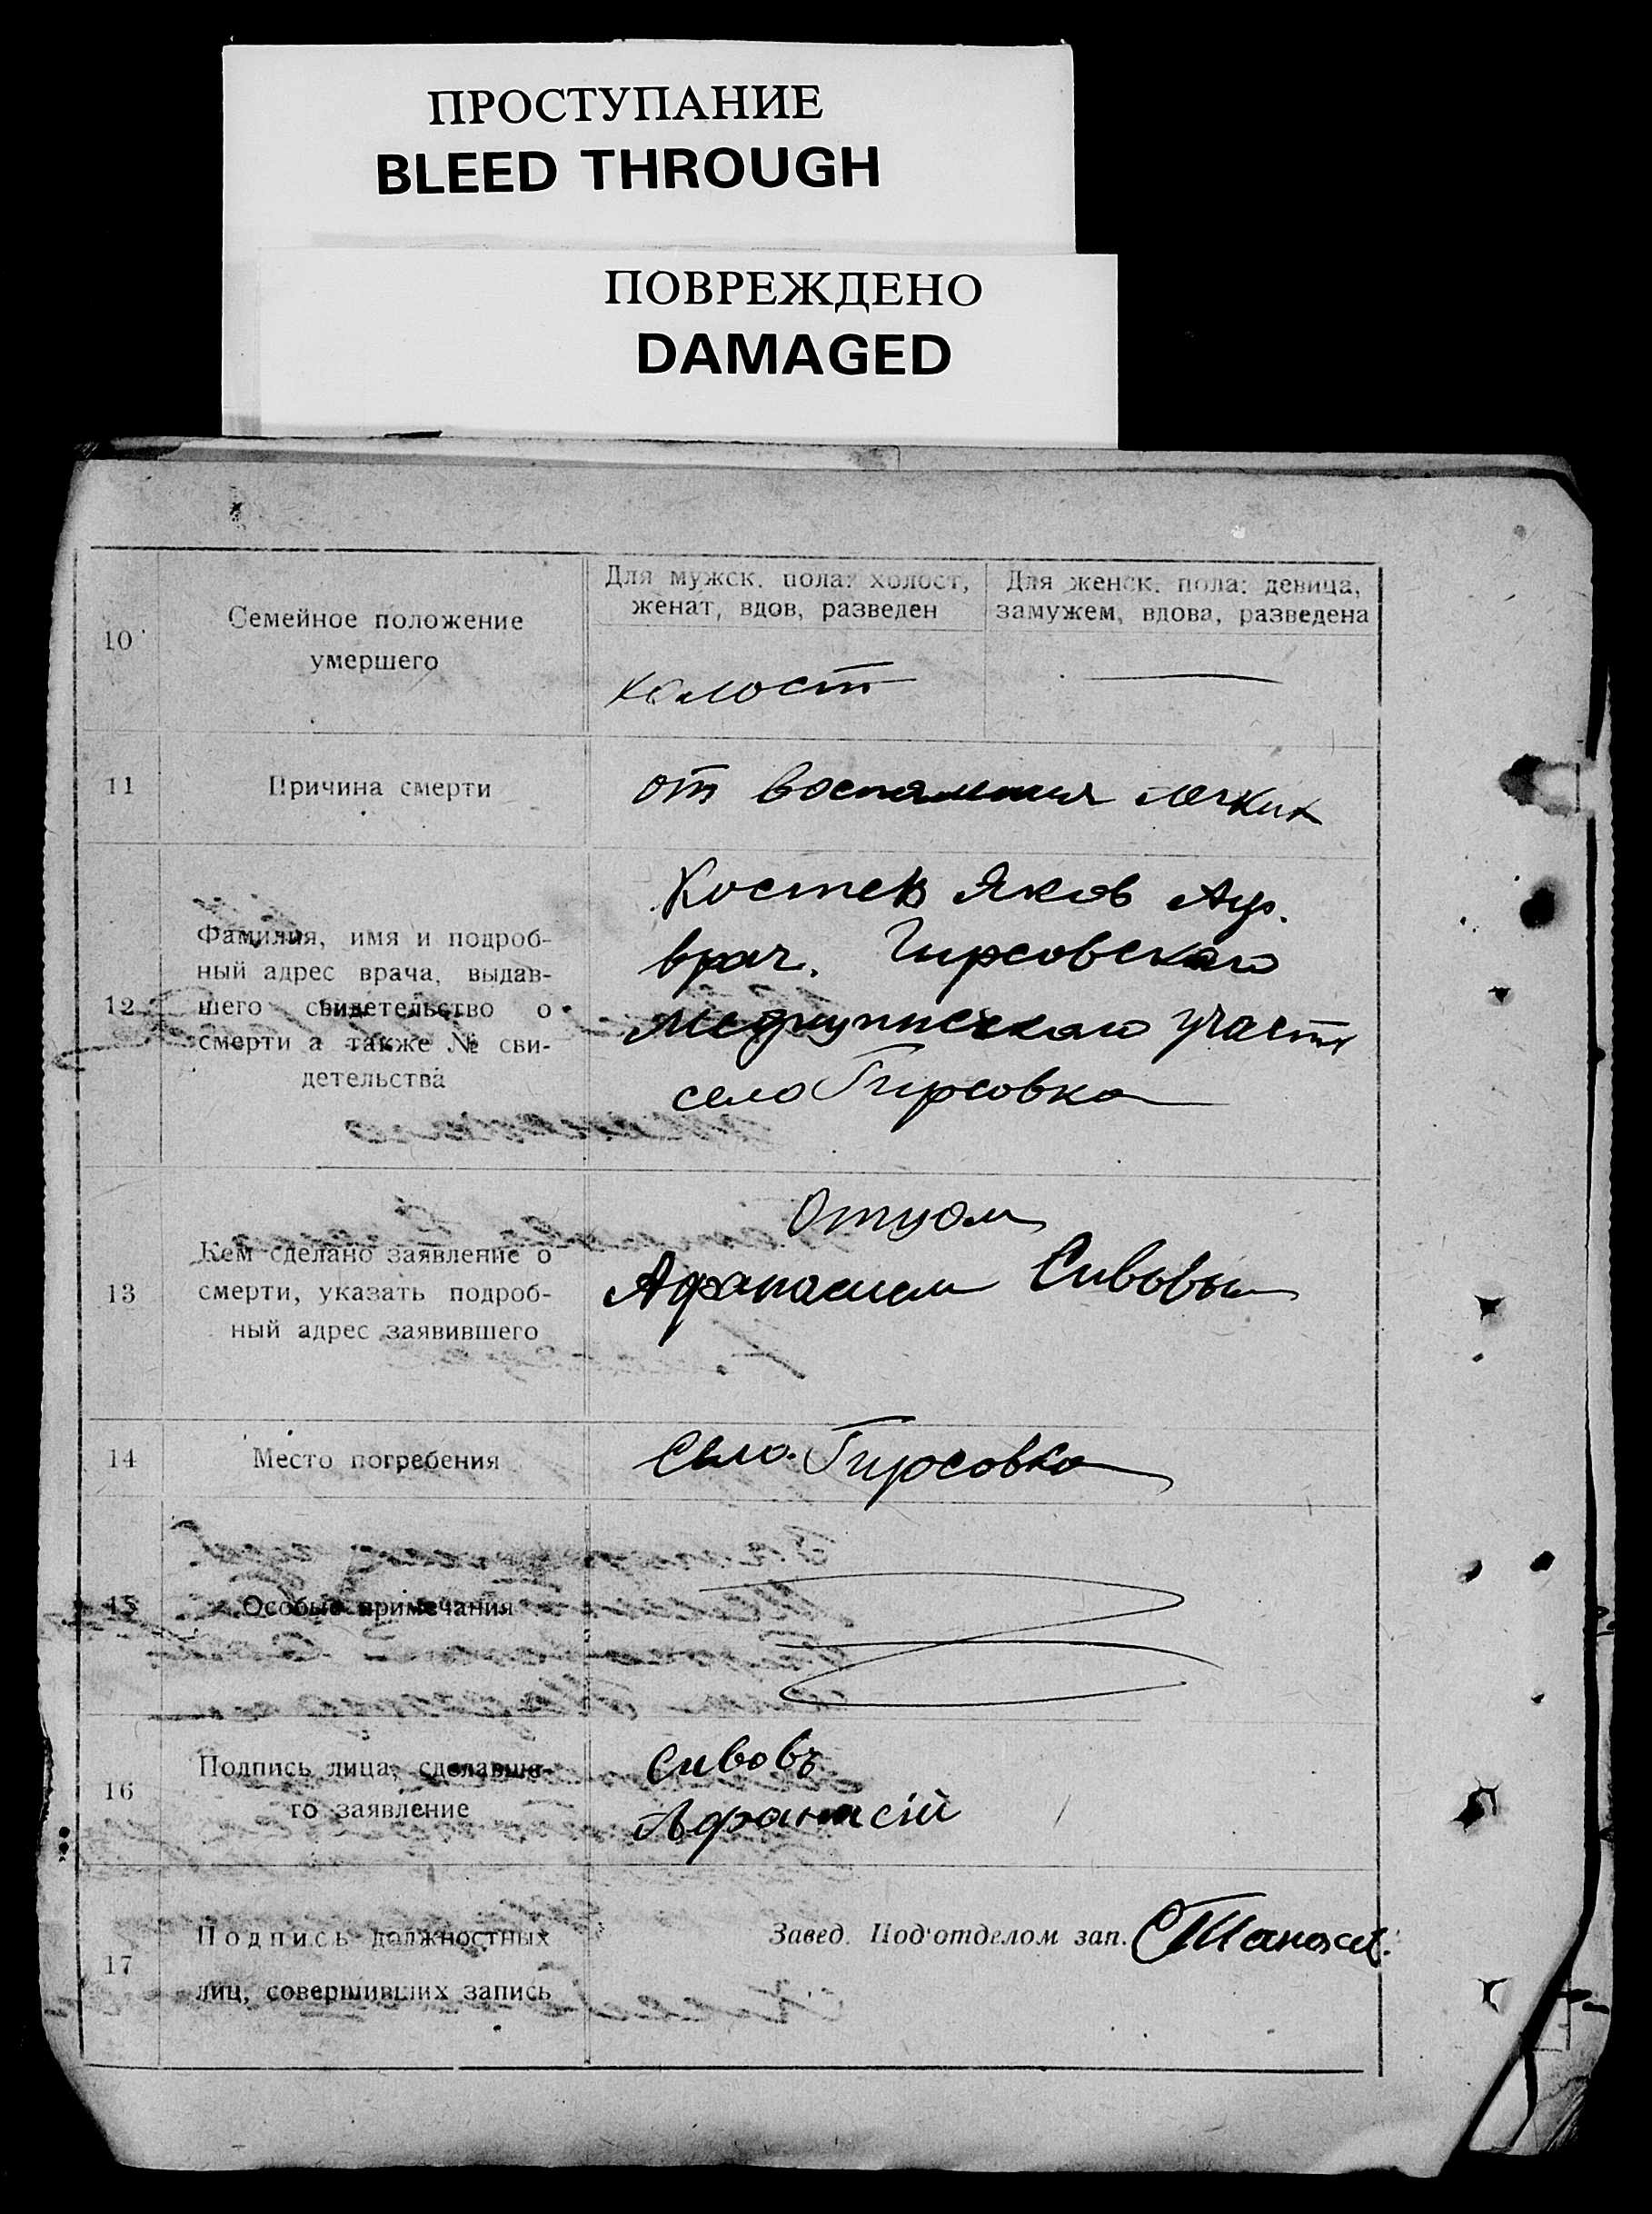 ПРОСТУПАНИЕ
BLEED THROUGH
ПОВРЕЖДЕНО
DAMAGED
10
Семейное положение
умершего
Для мужск. пола: холост,
женат, вдов, разведен
Для женск. пола: девица,
замужем, вдова, разведена
холост
11
Причина смерти
от воспаления легких
12
Фамилия, имя и подроб-
ный адрес врача, выдав-
шего свидетельство о
смерти а также № сви-
детельства
Костев Яков
врач. Гирсовскаго
медицинскаго участка
село Гирсовка
13
Кем сделано заявление о
смерти, указать подроб-
ный адрес заявившего
Отцом
Афанасием Сивовым
14
Место погребения
Село. Гирсовка
15
Особые примечания
16
Подпись лица, сделавше-
го заявление
Сивовъ
Афанасій
17
Подпись должностных
лиц, совершивших запись
Завед. Под'отделом зап.